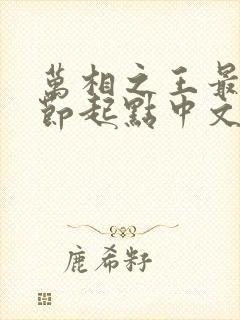 萬相之王最
節起點中文
鹿希籽